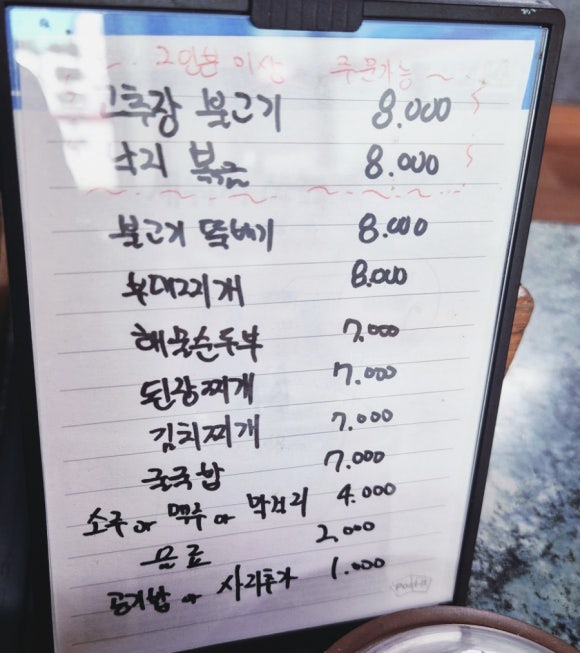 2인분 이상 주문가능 ~
고추장 불고기 8.000
낙지 볶음 8.000
불고기 뚝배기 8.000
부대찌개 8.000
해물순두부 7.000
된장찌개 7.000
김치찌개 7.000
굴국밥 7.000
소주 or 맥주 or 막걸리 4.000
음료 2.000
공기밥 or 사리추가 1.000